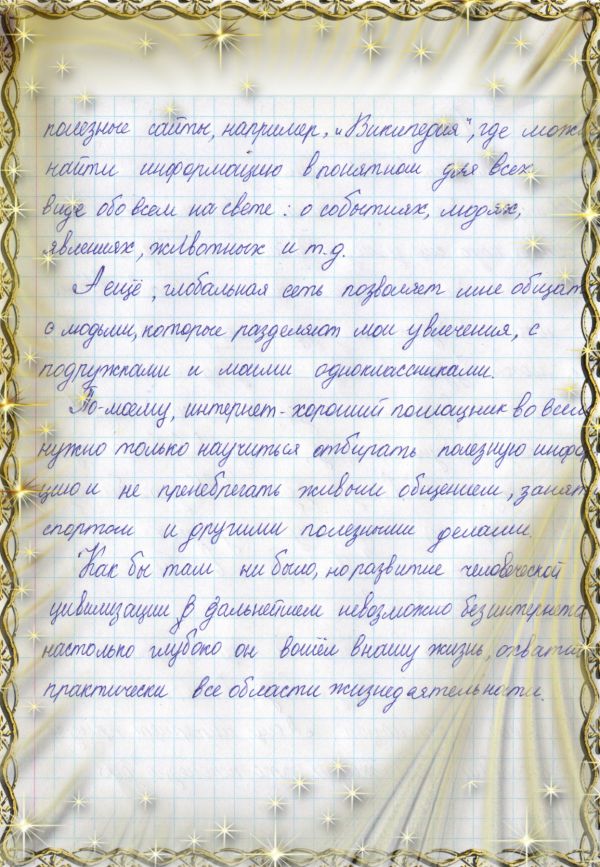 полезные сайты, например, „Википедия", где можн
найти информацию в понятном для всех
виде обо всем на свете: о событиях, людях,
явлениях, животных и т.д.
А ещё, глобальная сеть позволяет мне общат
с людьми, которые разделяют мои увлечения, с
подружками и моими одноклассниками.
По-моему, интернет - хороший помощник во всем
нужно только научиться отбирать полезную инфо
цию и не пренебрегать живым общением, занят
спортом и другими полезными делами.
Как бы там ни было, но развитие человеческой
цивилизации в дальнейшем невозможно без интернета
настолько глубоко он вошёл в нашу жизнь, охватил
практически все области жизнедеятельности.